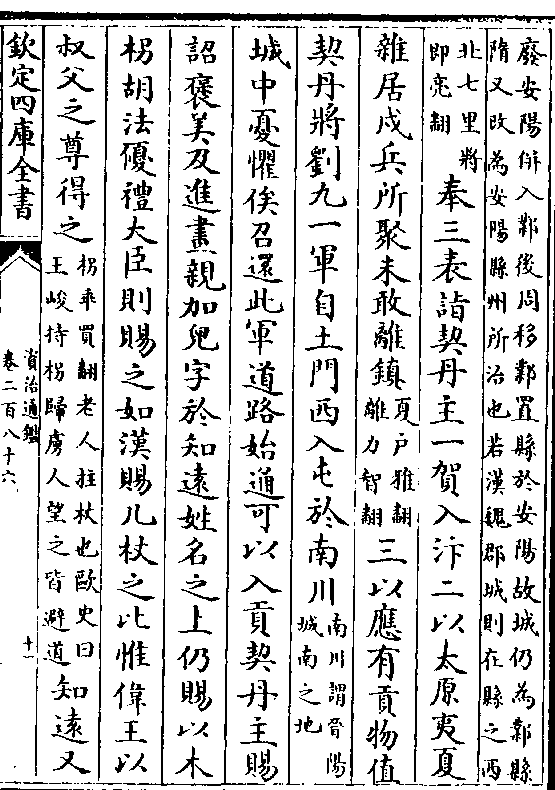 廢安陽併入鄴後周移鄴置縣於安陽故城仍為鄴縣
隋又改為安陽縣州所治也若漢魏郡城則在縣之西
北七里將
即亮翻
奉三表詣契丹主一賀入汴二以太原夷夏
雜居戍兵所聚未敢離鎮
夏戶雅翻
離力智翻
三以應有貢物值
契丹將劉九一軍自土門西入屯於南川
南川謂晉陽
城南之地
城中憂懼俟召還此軍道路始通可以入貢契丹主賜
詔褒美及進畫親加兒字於知遠姓名之上仍賜以木
柺胡法優禮大臣則賜之如漢賜几杖之比惟偉王以
叔父之尊得之
柺乖買翻老人拄杖也歐史曰
王峻持柺歸虜人望之皆避道
知遠又
欽定四庫全書
資治通鑑
卷二百八十六
十一